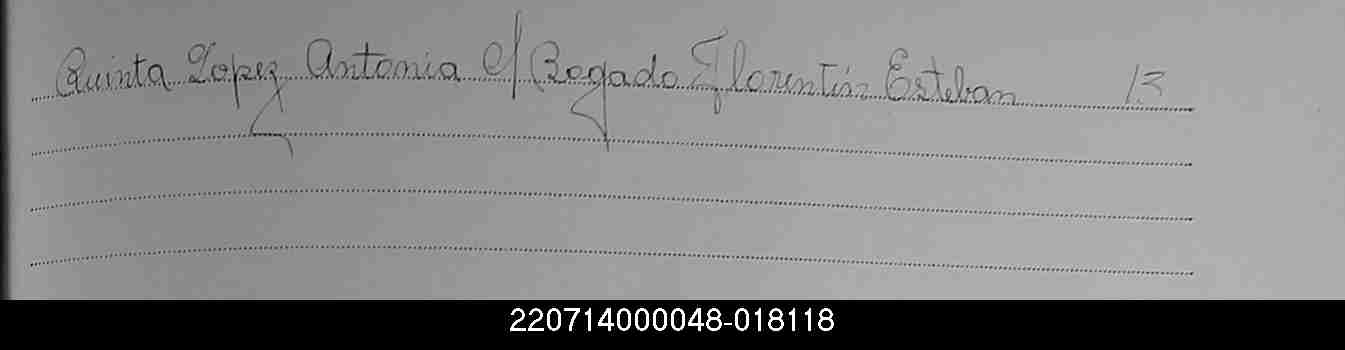 Quinta Lopez Antonia c/ Bogado Florentin Esteban 13
220714000048-018118